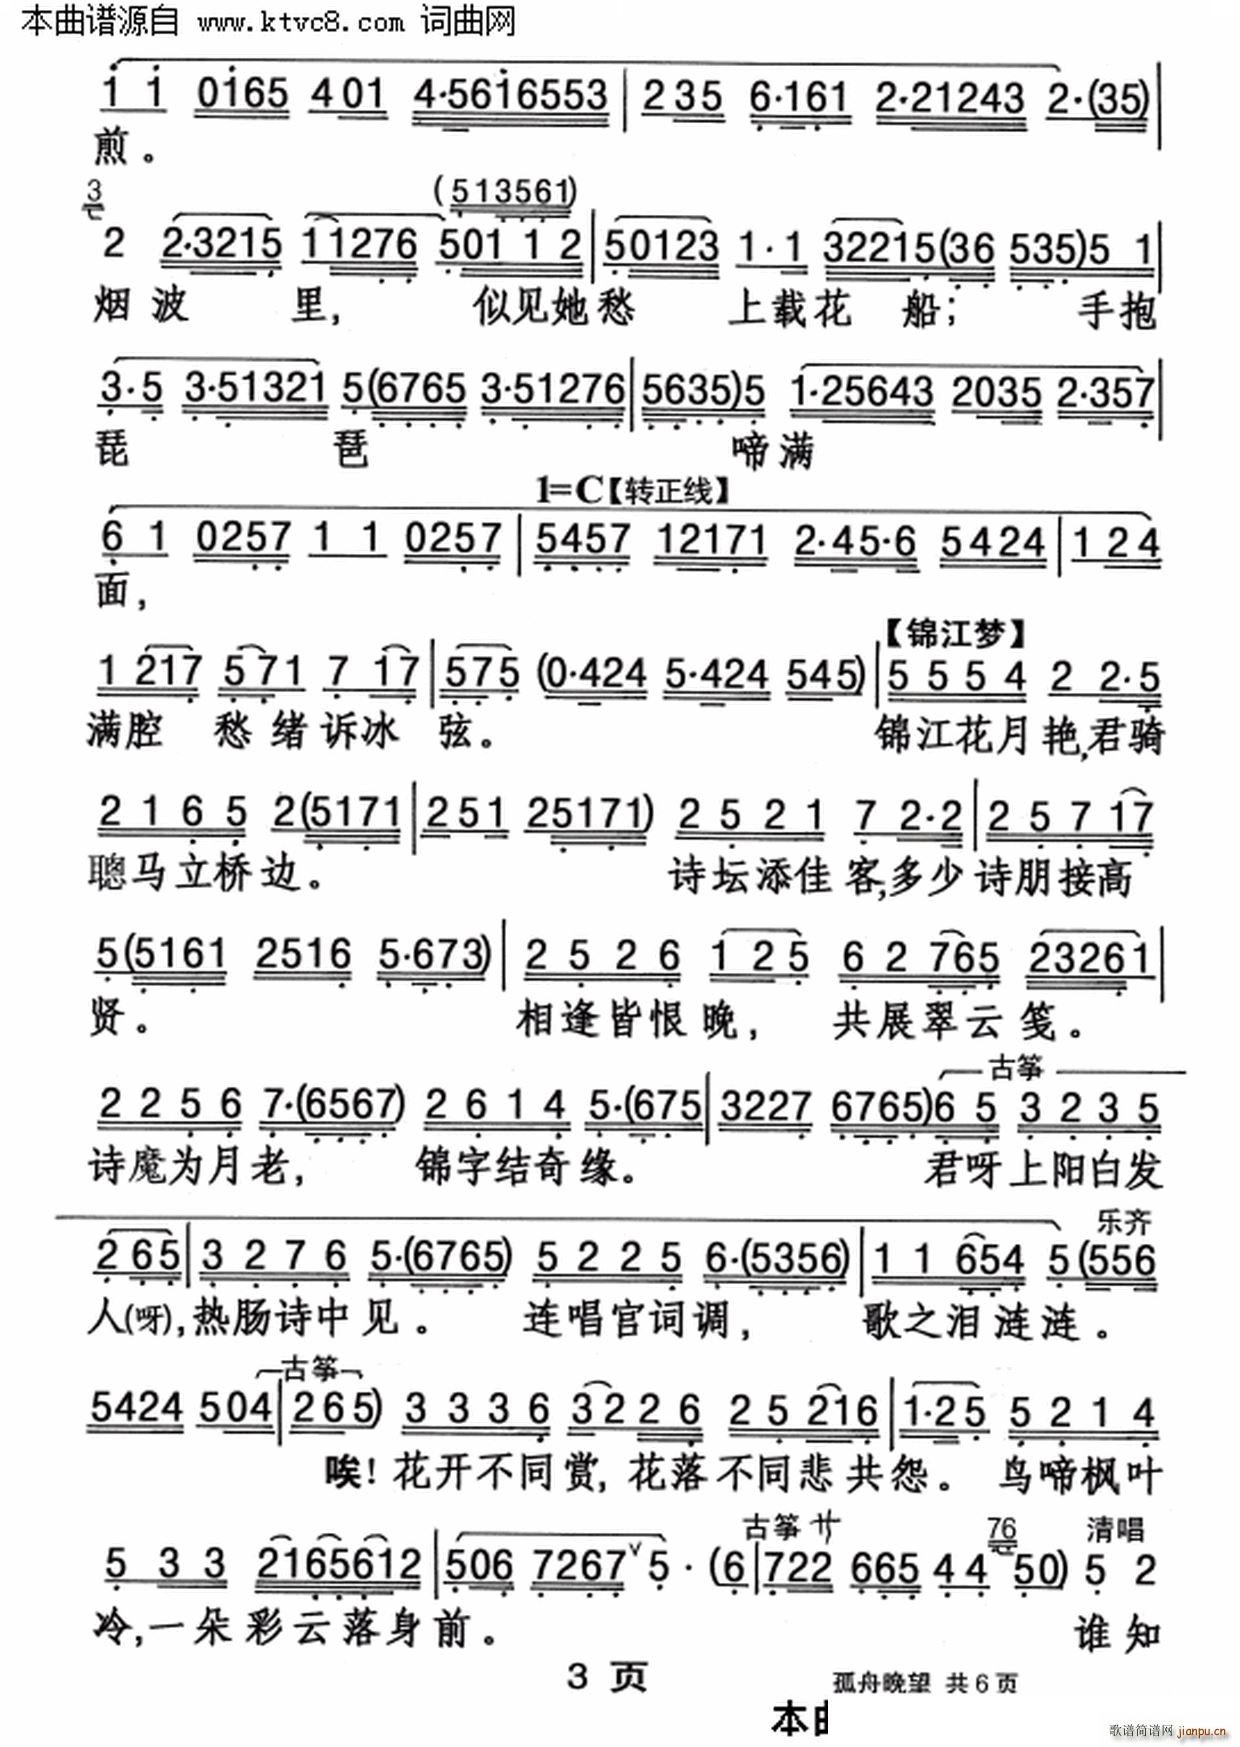 本曲谱源自 www.ktvc8.com 词曲网
1 1 0165 401 4·56i6553 | 235 6·161 2·21243 2·(35) |
煎。
3
(513561)
2 2·3215 11276 501 1 2 | 50123 1·1 32215(36 535)5 1 |
烟波 里, 似见她愁 上载花 船; 手抱
3·5 3·51321 5(6765 3·51276 | 5635)5 1·25643 2035 2·357 |
琵 琶 啼满
1=C【转正线】
6 1 0257 1 1 0257 | 5457 12171 2·45·6 5424 | 1 2 4
面,
【锦江梦】
1 217 571 7 17 | 575 (0·424 5·424 545) | 5 5 5 4 2 2·5
满腔 愁绪诉冰 弦。 锦江花月艳,君骑
2 1 6 5 2(5171 | 251 25171) 2 5 2 1 7 2·2 | 2 5 7 17
聰马立桥边。 诗坛添佳客,多少诗朋接高
5(5161 2516 5·673) | 2 5 2 6 1 2 5 6 2 765 23261 |
贤。 相逢皆恨晚, 共展翠云笺。
古筝
2 2 5 6 7·(6567) 2 6 1 4 5·(675 | 3227 6765)6 5 3 2 3 5
诗魔为月老, 锦字结奇缘。 君呀上阳白发
乐齐
2 65 | 3 2 7 6 5·(6765) 5 2 2 5 6·(5356) | 1 1 654 5(556
人(呀),热肠诗中见。 连唱宫词调, 歌之泪涟涟。
古筝
5424 504 | 265) 3 3 3 6 32 2 6 2 5 216 | 1·25 5 2 1 4
唉!花开不同赏,花落不同悲共怨。 鸟啼枫叶
古筝 サ 76 清唱
5 3 3 2165612 | 506 7267 ∨ 5· (6 | 722 665 4 4 50) 5 2
冷,一朵彩云落身前。 谁知
3 页 孤舟晚望 共6页
本曲
歌谱简谱网 jianpu.cn